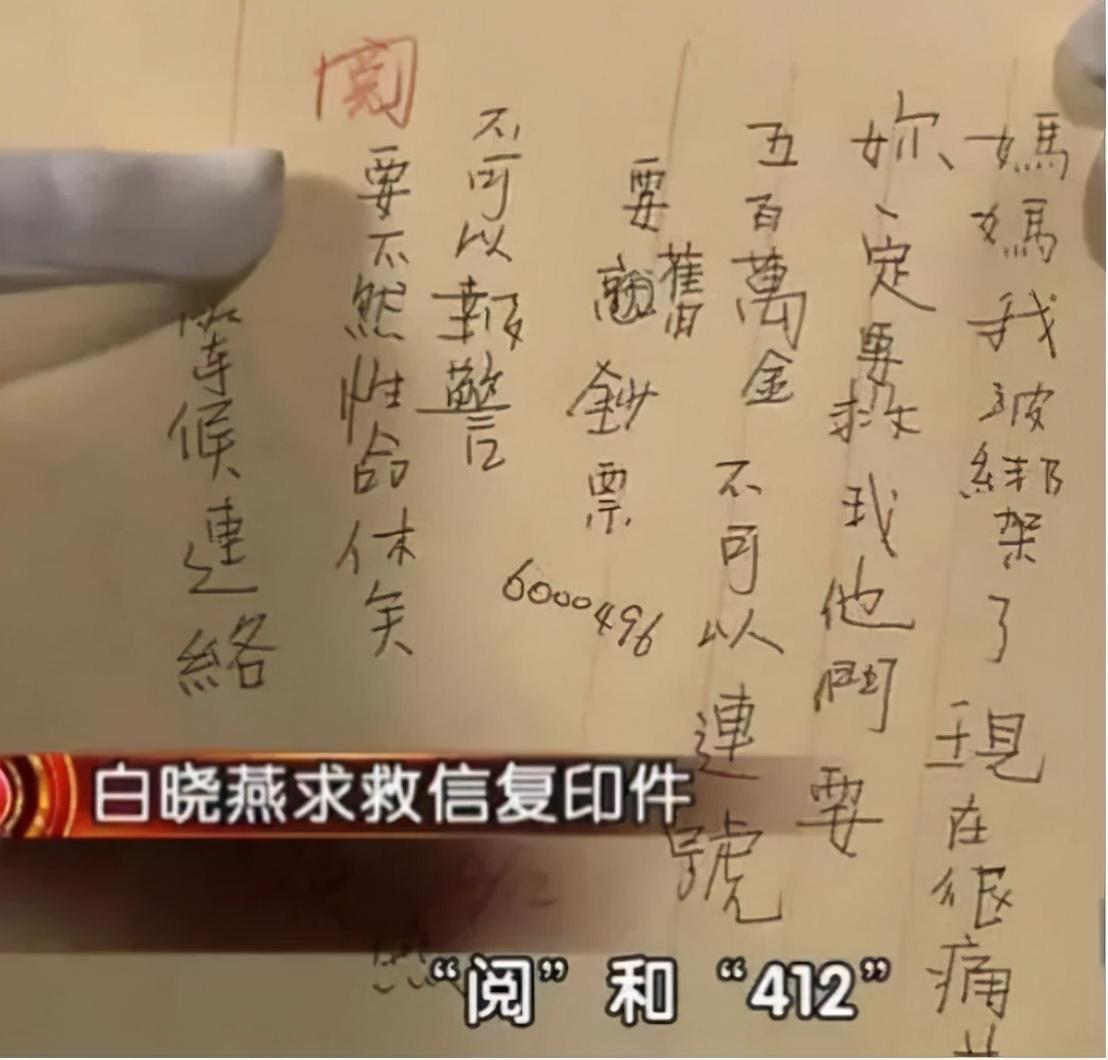 媽媽我被綁架了現在很痛
妳一定要救我他們要
五百萬金不可以連號
要舊鈔票
6000496
不可以報警
閱
要不然性命休矣
等候連絡
白晓燕求救信复印件
“阅”和“412”